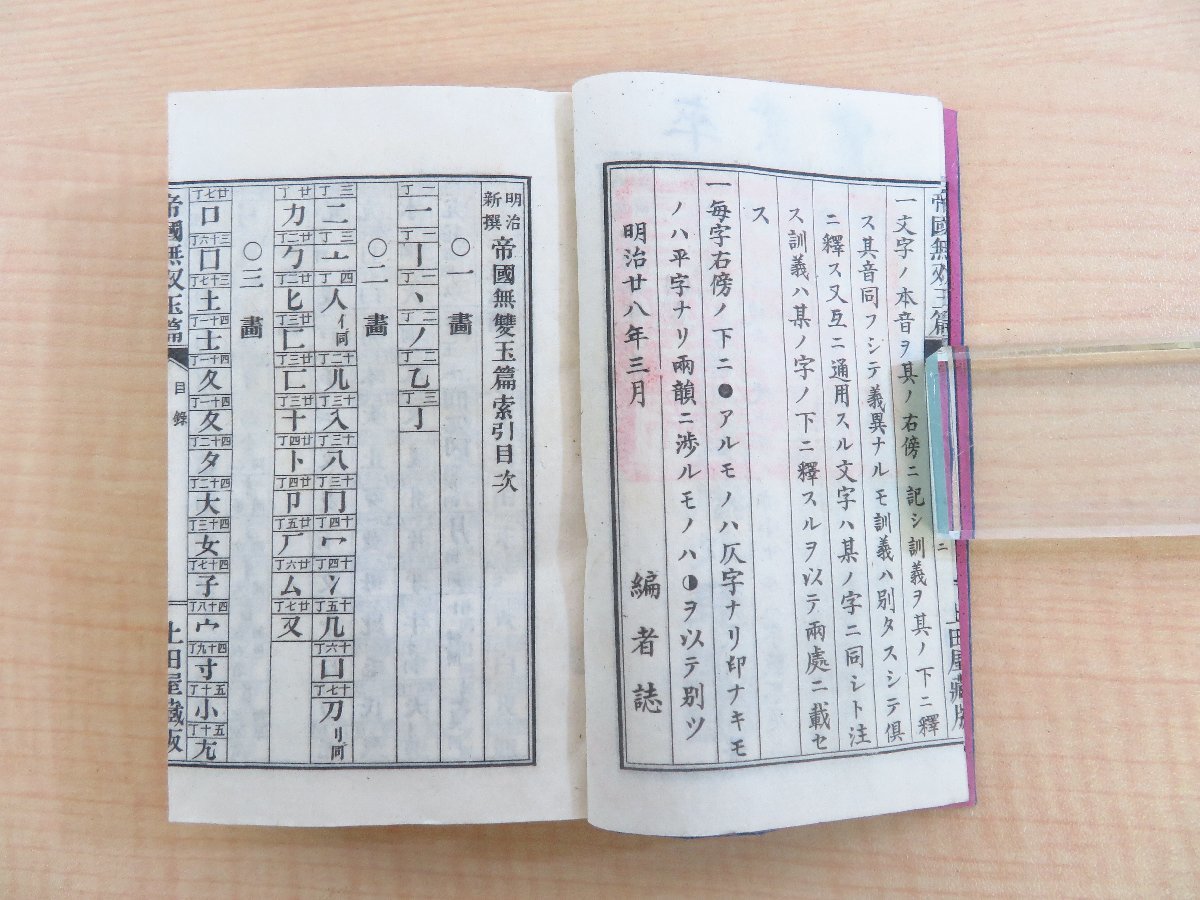 帝國無双玉篇
上田屋藏版
一文字ノ本音ヲ其ノ右傍ニ記シ訓義ヲ其ノ下ニ釋
ス其音同フシテ義異ナルモ訓義ハ別タスシテ俱
ニ釋ス又互ニ通用スル文字ハ某ノ字ニ同シト注
ス訓義ハ某ノ字ノ下ニ釋スルヲ以テ兩處ニ載セ
ス
一每字右傍ノ下ニ●アルモノハ仄字ナリ印ナキモ
ノハ平字ナリ兩韻ニ涉ルモノハ◑ヲ以テ別ツ
明治廿八年三月
編者誌
明治新撰帝國無雙玉篇索引目次
○一畫
二丁一二丁丨二丁丶二丁ノ二丁乙三丁亅
○二畫
三丁二三丁亠四丁人イ同十二丁儿十三丁入十三丁八十三丁冂十四丁冖十四丁冫十五丁几十六丁凵十七丁刀刂同
廿丁力廿二丁勹廿二丁匕廿三丁匚廿三丁匸廿三丁十廿四丁卜廿四丁卩廿五丁厂廿六丁厶廿七丁又
○三畫
廿七丁口三十六丁囗三十七丁土四十一丁士四十一丁夂四十一丁夊四十二丁夕四十二丁大四十三丁女四十七丁子四十八丁宀四十九丁寸五十丁小五十丁尢
帝國無双玉篇
目錄
上田屋藏版